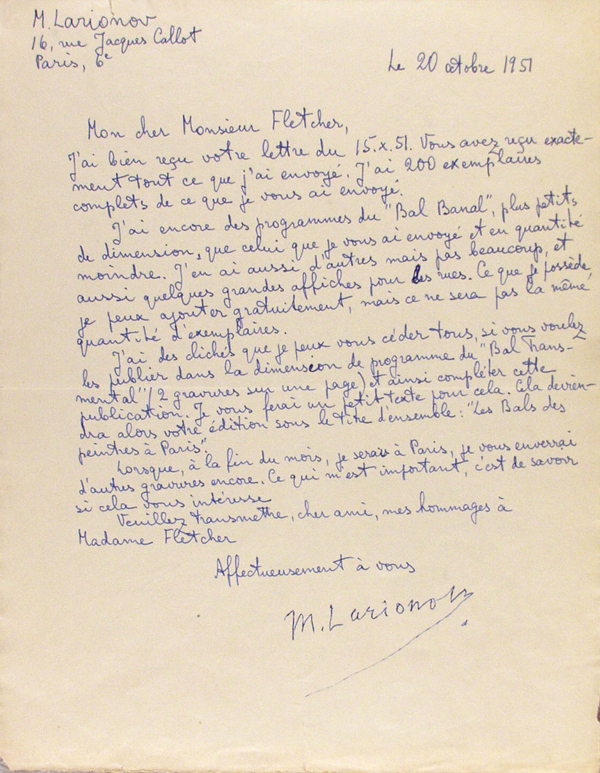 M. Larionov
16, rue Jacques Callot
Paris, 6e
Le 20 octobre 1951
Mon cher Monsieur Fletcher,
J'ai bien reçu votre lettre du 15.x.51. Vous avez reçu exacte-
ment tout ce que j'ai envoyé. J'ai 200 exemplaires
complets de ce que je vous ai envoyé.
J'ai encore des programmes du "Bal Banal", plus petits
de dimension, que celui que je vous ai envoyé et en quantité
moindre. J'en ai aussi d'autres mais pas beaucoup, et
aussi quelques grandes affiches pour les rues. Ce que je possède,
je peux ajouter gratuitement, mais ce ne sera pas la même
quantité d'exemplaires.
J'ai des clichés que je peux vous céder tous, si vous voulez
les publier dans la dimension de programme du "Bal Trans-
mental" (2 gravures sur une page) et ainsi compléter cette
publication. Je vous ferai un petit texte pour cela. Cela devien-
dra alors votre édition sous le titre d'ensemble: "Les Bals des
peintres à Paris".
Lorsque, à la fin du mois, je serai à Paris, je vous enverrai
d'autres gravures encore. Ce qui m'est important, c'est de savoir
si cela vous intéresse
Veuillez transmettre, cher ami, mes hommages à
Madame Fletcher
Affectueusement à vous
M. Larionov